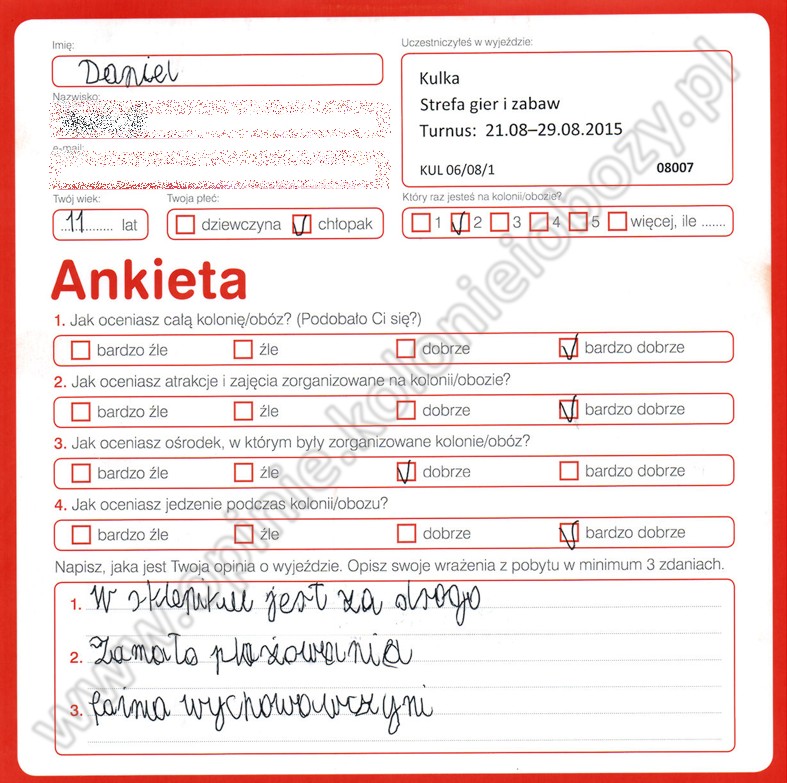 Imię:
Daniel
Uczestniczyłeś w wyjeździe:
Kulka
Strefa gier i zabaw
Turnus: 21.08–29.08.2015
KUL 06/08/1 08007
Nazwisko:
e-mail:
Twój wiek:
11 lat
Twoja płeć:
dziewczyna chłopak
Który raz jesteś na kolonii/obozie?
1 2 3 4 5 więcej, ile .......
Ankieta
1. Jak oceniasz całą kolonię/obóz? (Podobało Ci się?)
bardzo źle źle dobrze bardzo dobrze
2. Jak oceniasz atrakcje i zajęcia zorganizowane na kolonii/obozie?
bardzo źle źle dobrze bardzo dobrze
3. Jak oceniasz ośrodek, w którym były zorganizowane kolonie/obóz?
bardzo źle źle dobrze bardzo dobrze
4. Jak oceniasz jedzenie podczas kolonii/obozu?
bardzo źle źle dobrze bardzo dobrze
Napisz, jaka jest Twoja opinia o wyjeździe. Opisz swoje wrażenia z pobytu w minimum 3 zdaniach.
1. W sklepiku jest za drogo
2. Zamało plażowania
3. fajna wychowawczyni
www.opinie.kolonieiobozy.pl